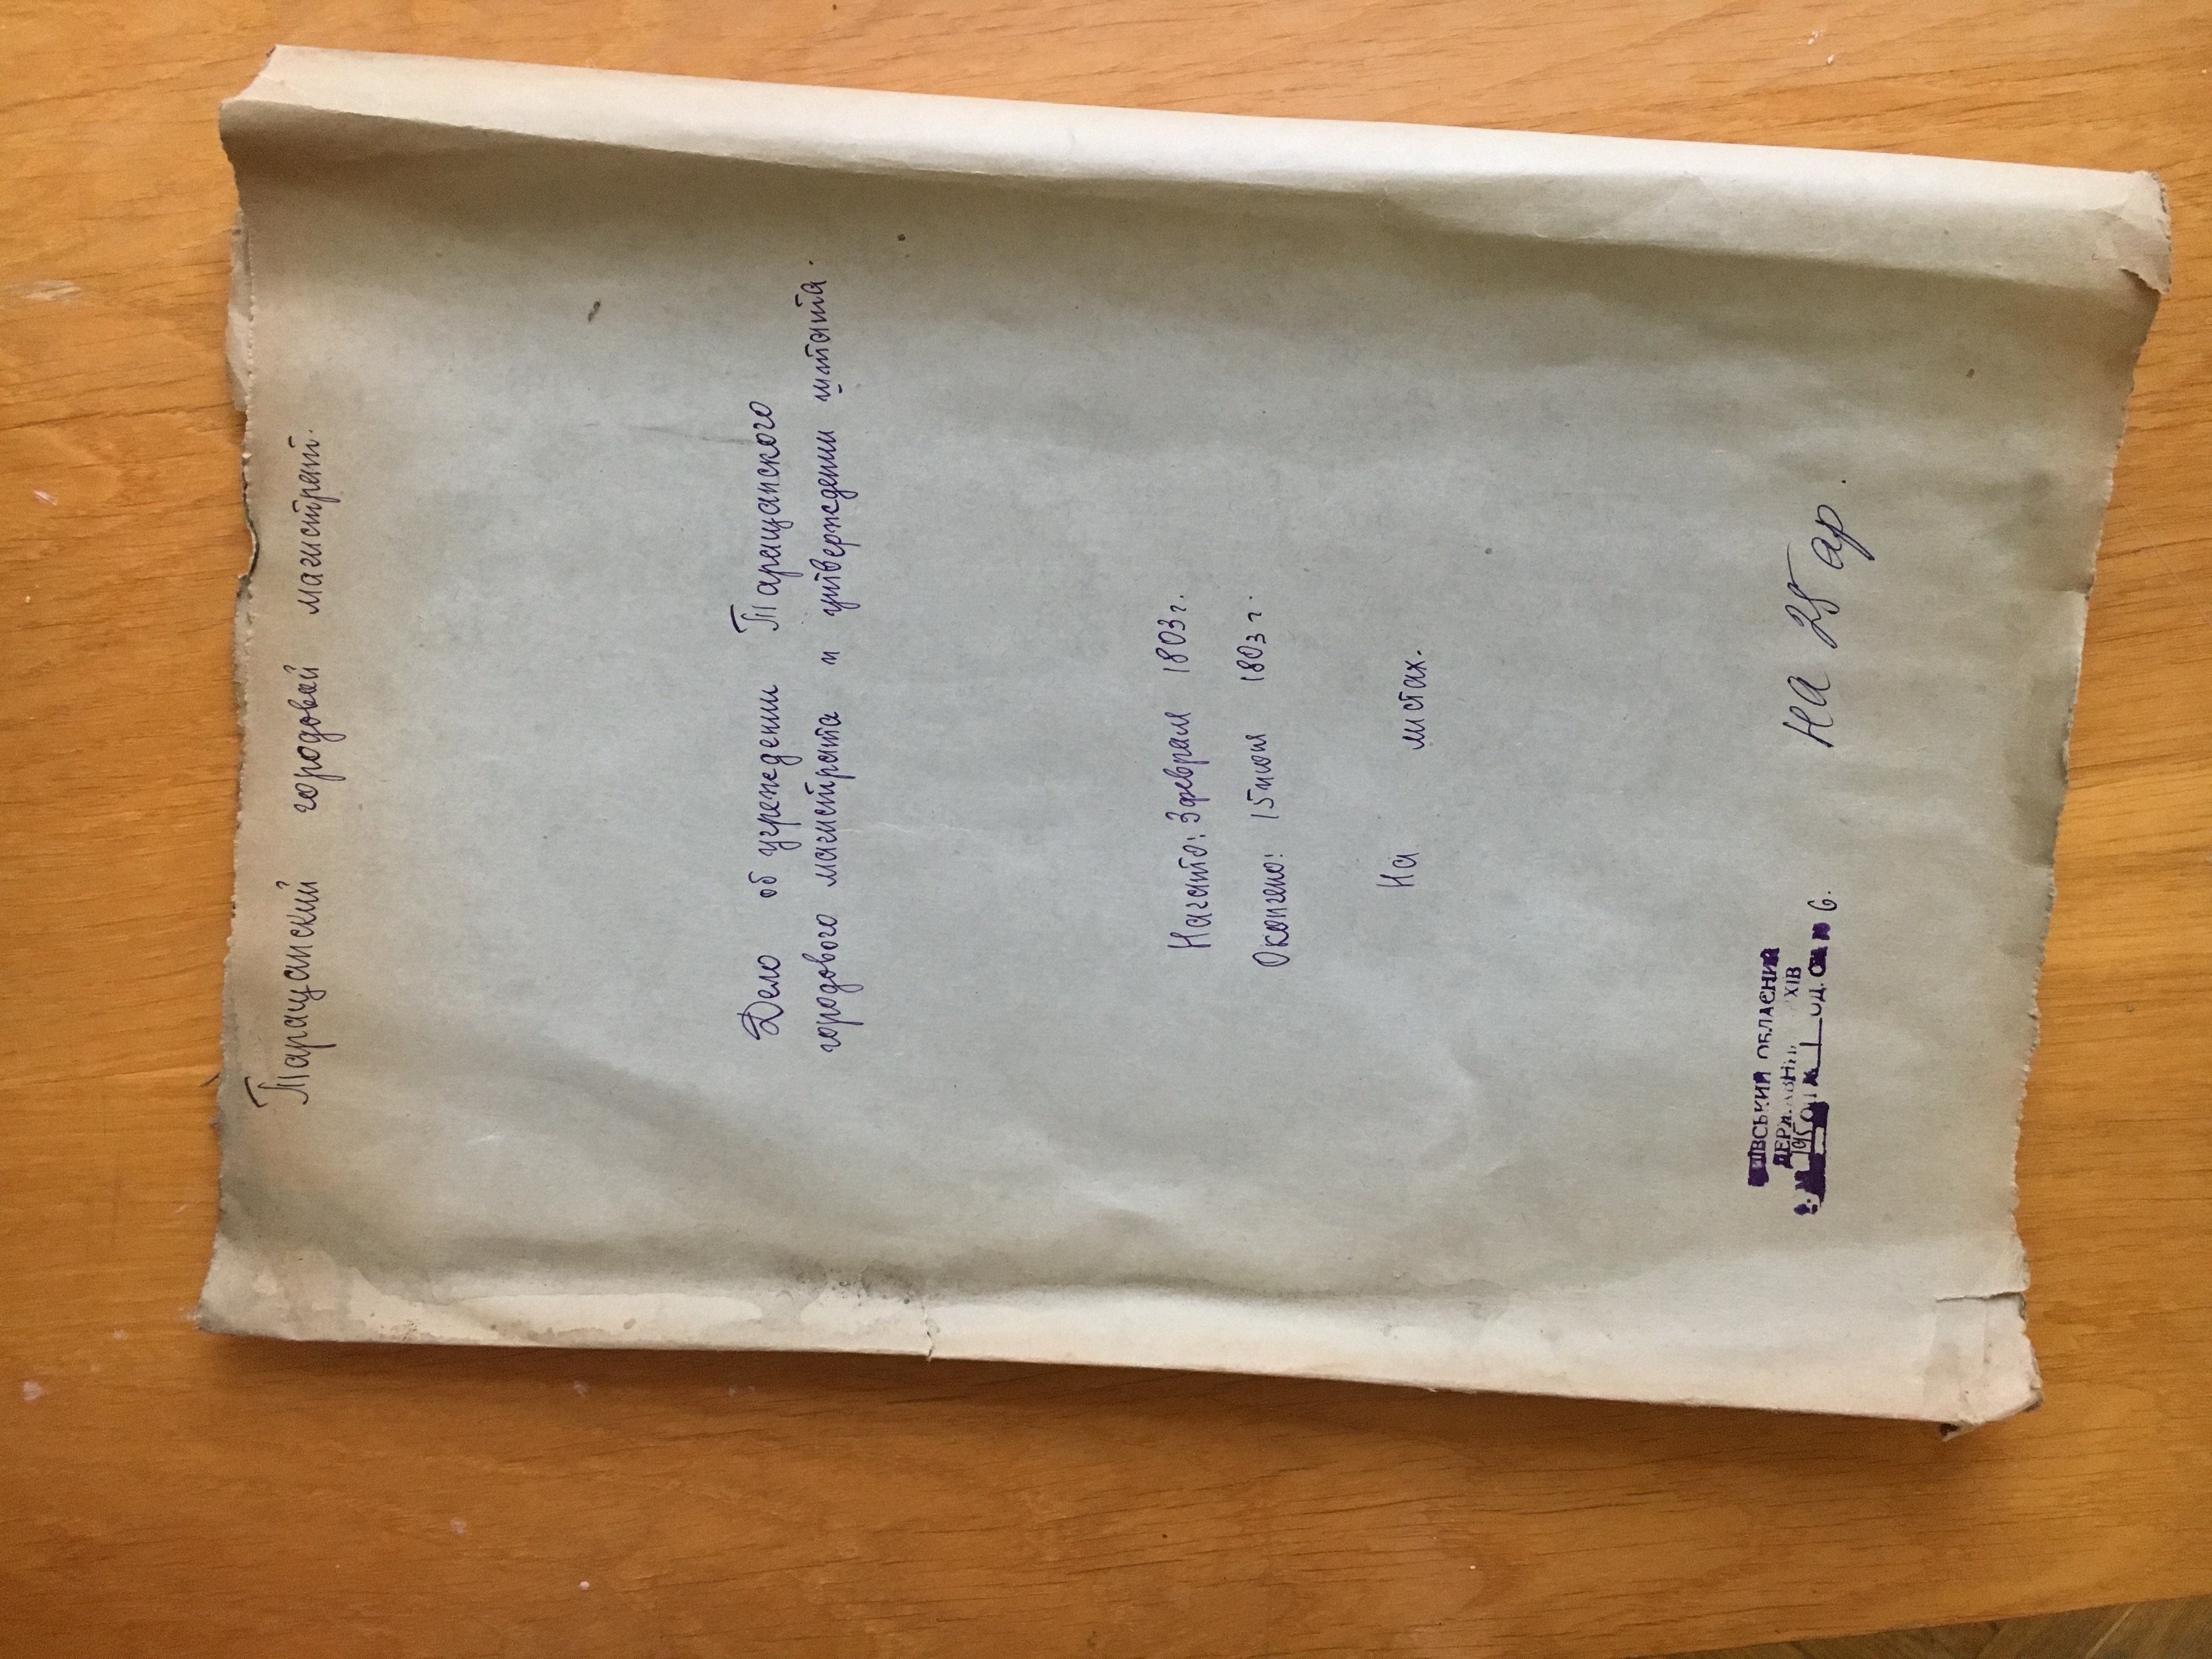 Таращанский городовой магистрат.
Дело об учреждении Таращанского
городового магистрата и утверждении штата.
Начато: 3 февраля 1803 г.
Окончено: 15 июня 1803 г.
На листах.
На 25 ар.
ОБЛАСНИЙ
195 1 од. 6.